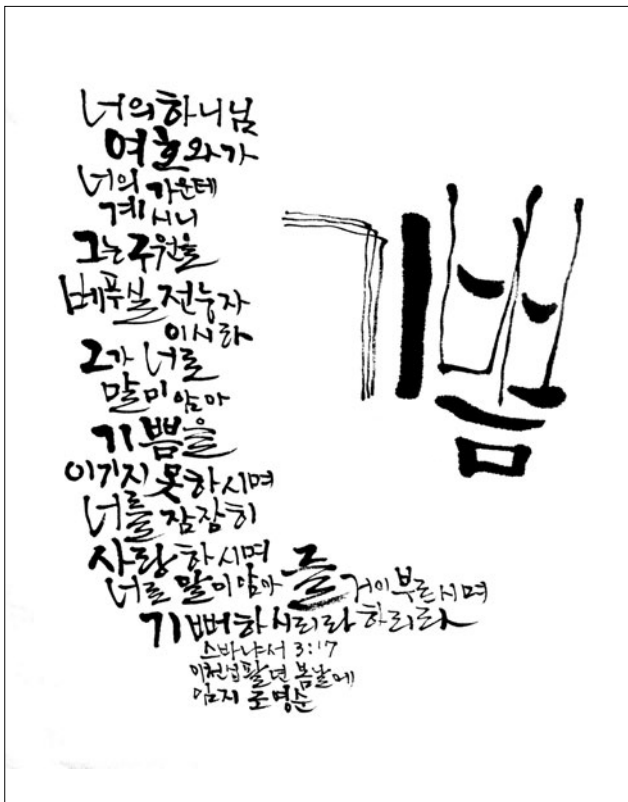 너의 하나님
여호와가
너의 가운데
계시니
그는 구원을
베푸실 전능자
이시라
그가 너로
말미암아
기쁨을
이기지 못하시며
너를 잠잠히
사랑하시며
너로 말미암아 즐거이 부르시며
기뻐하시리라 하리라
스바냐서 3:17
이천십팔년 봄날에
조명순
기쁨